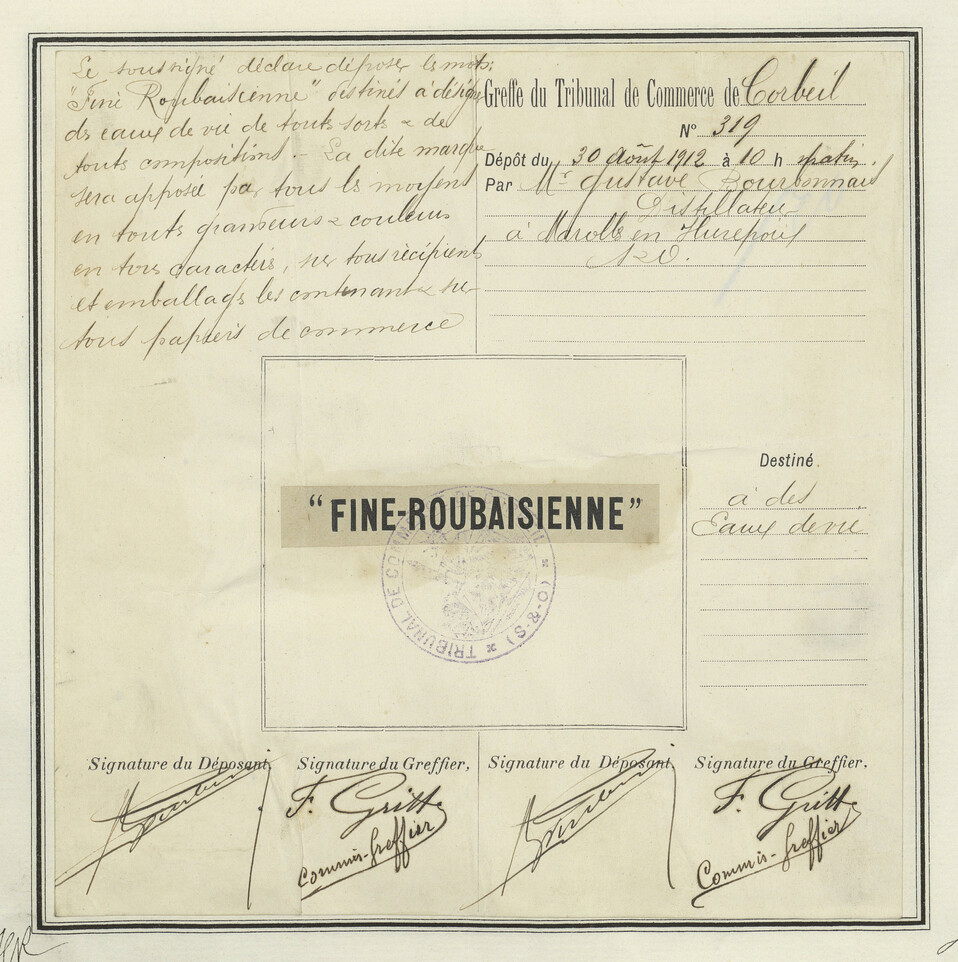 Le soussigné déclare déposer les mots:
"Fine Roubaisienne" destinés à désigner
des eaux de vie de touts sorts & de
touts compositions. - La dite marque
sera apposée par tous les moyens
en touts grandeurs & couleurs
en tous caractères, sur tous récipients
et emballags les contenant & sur
tous papiers de commerce
Greffe du Tribunal de Commerce de Corbeil
N° 319
Dépôt du 30 Août 1912 à 10 h matin.
Par Mr Gustave Bourbonnais
Distillateur
à Marolles en Hurepoix
S&O.
"FINE-ROUBAISIENNE"
TRIBUNAL DE COMMERCE DE CORBEIL * (S-&-O) *
Destiné
à des
Eaux de vie
Signature du Déposant, Signature du Greffier, Signature du Déposant, Signature du Greffier,
F. Gritt F. Gritt
Commis-Greffier Commis-Greffier